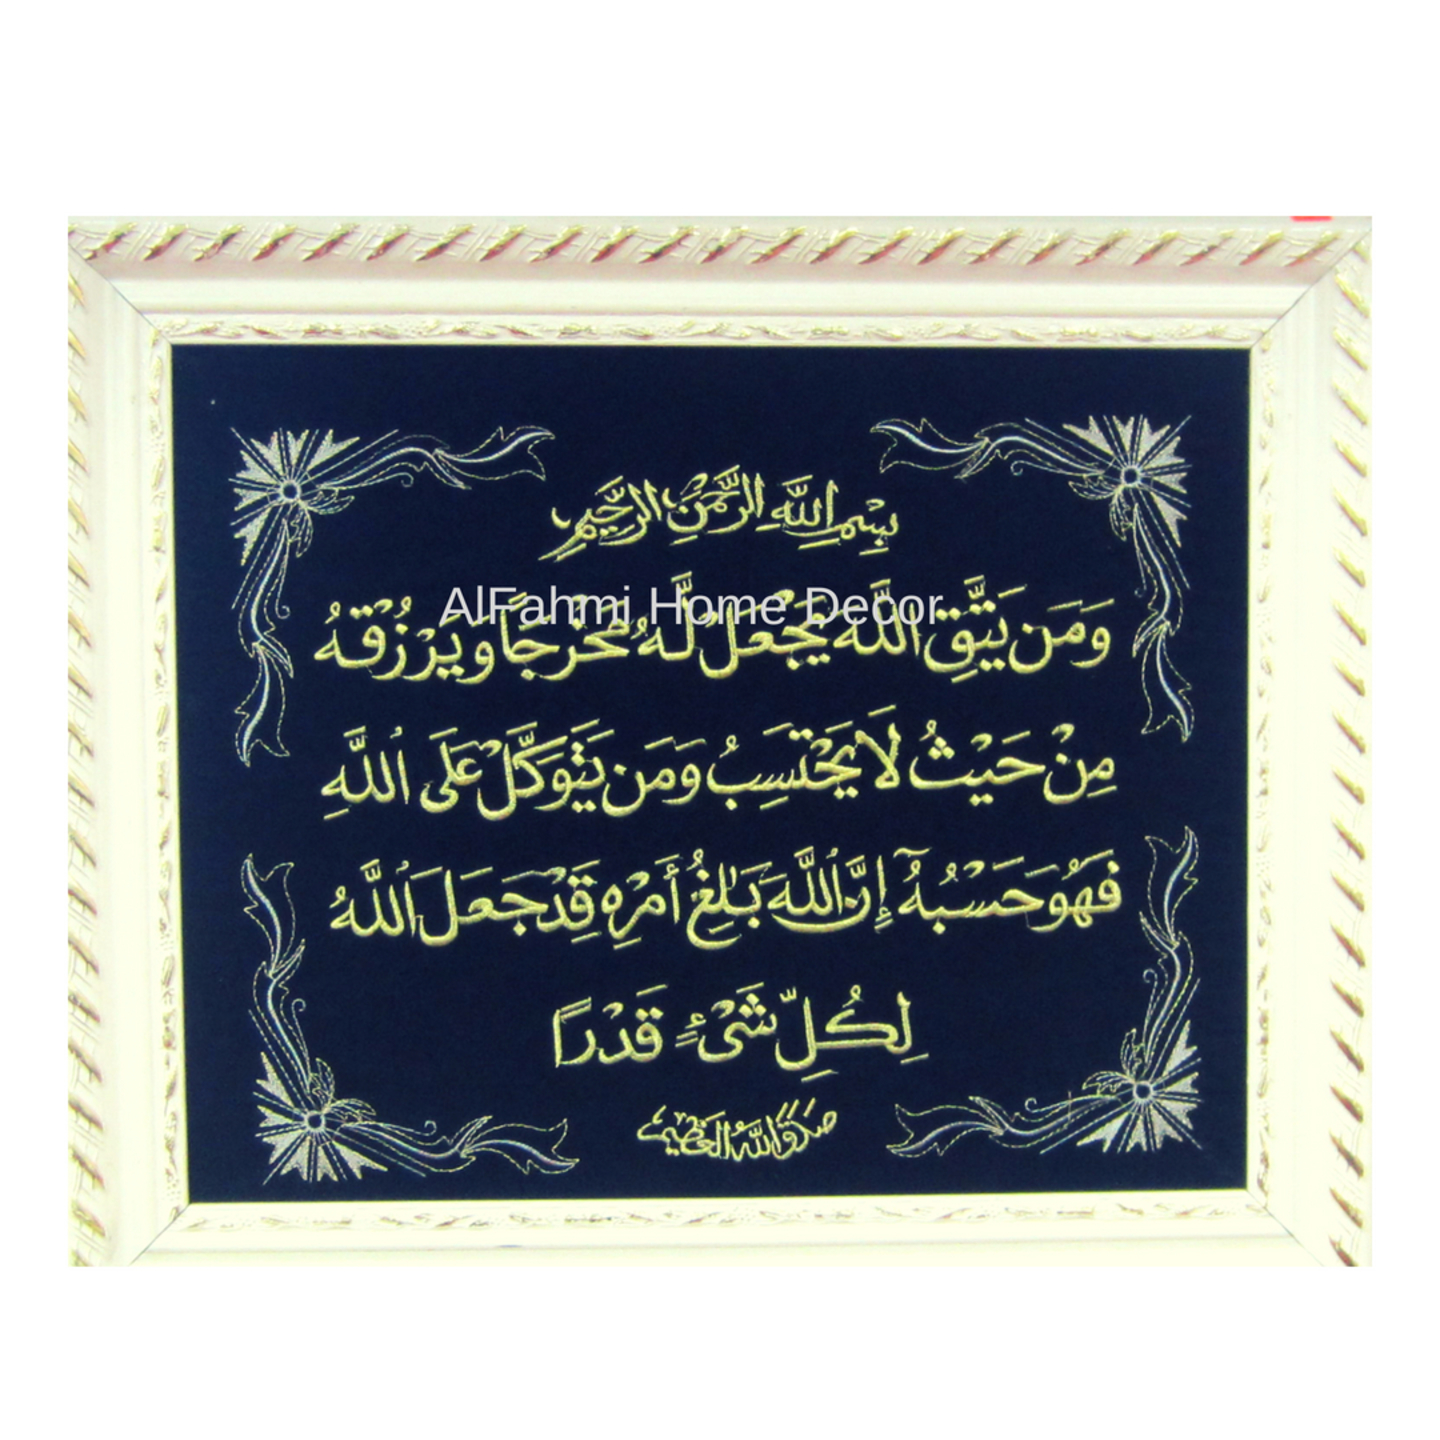 بِسْمِ اللَّهِ الرَّحْمٰنِ الرَّحِيمِ
AlFahmi Home Decor
وَمَن يَتَّقِ اللَّهَ يَجْعَل لَّهُ مَخْرَجًا وَيَرْزُقْهُ
مِنْ حَيْثُ لَا يَحْتَسِبُ وَمَن يَتَوَكَّلْ عَلَى ٱللَّهِ
فَهُوَ حَسْبُهُ إِنَّ ٱللَّهَ بَالِغُ أَمْرِهِ قَدْ جَعَلَ ٱللَّهُ
لِكُلِّ شَىْءٍ قَدْرًا
صدق الله العظيم